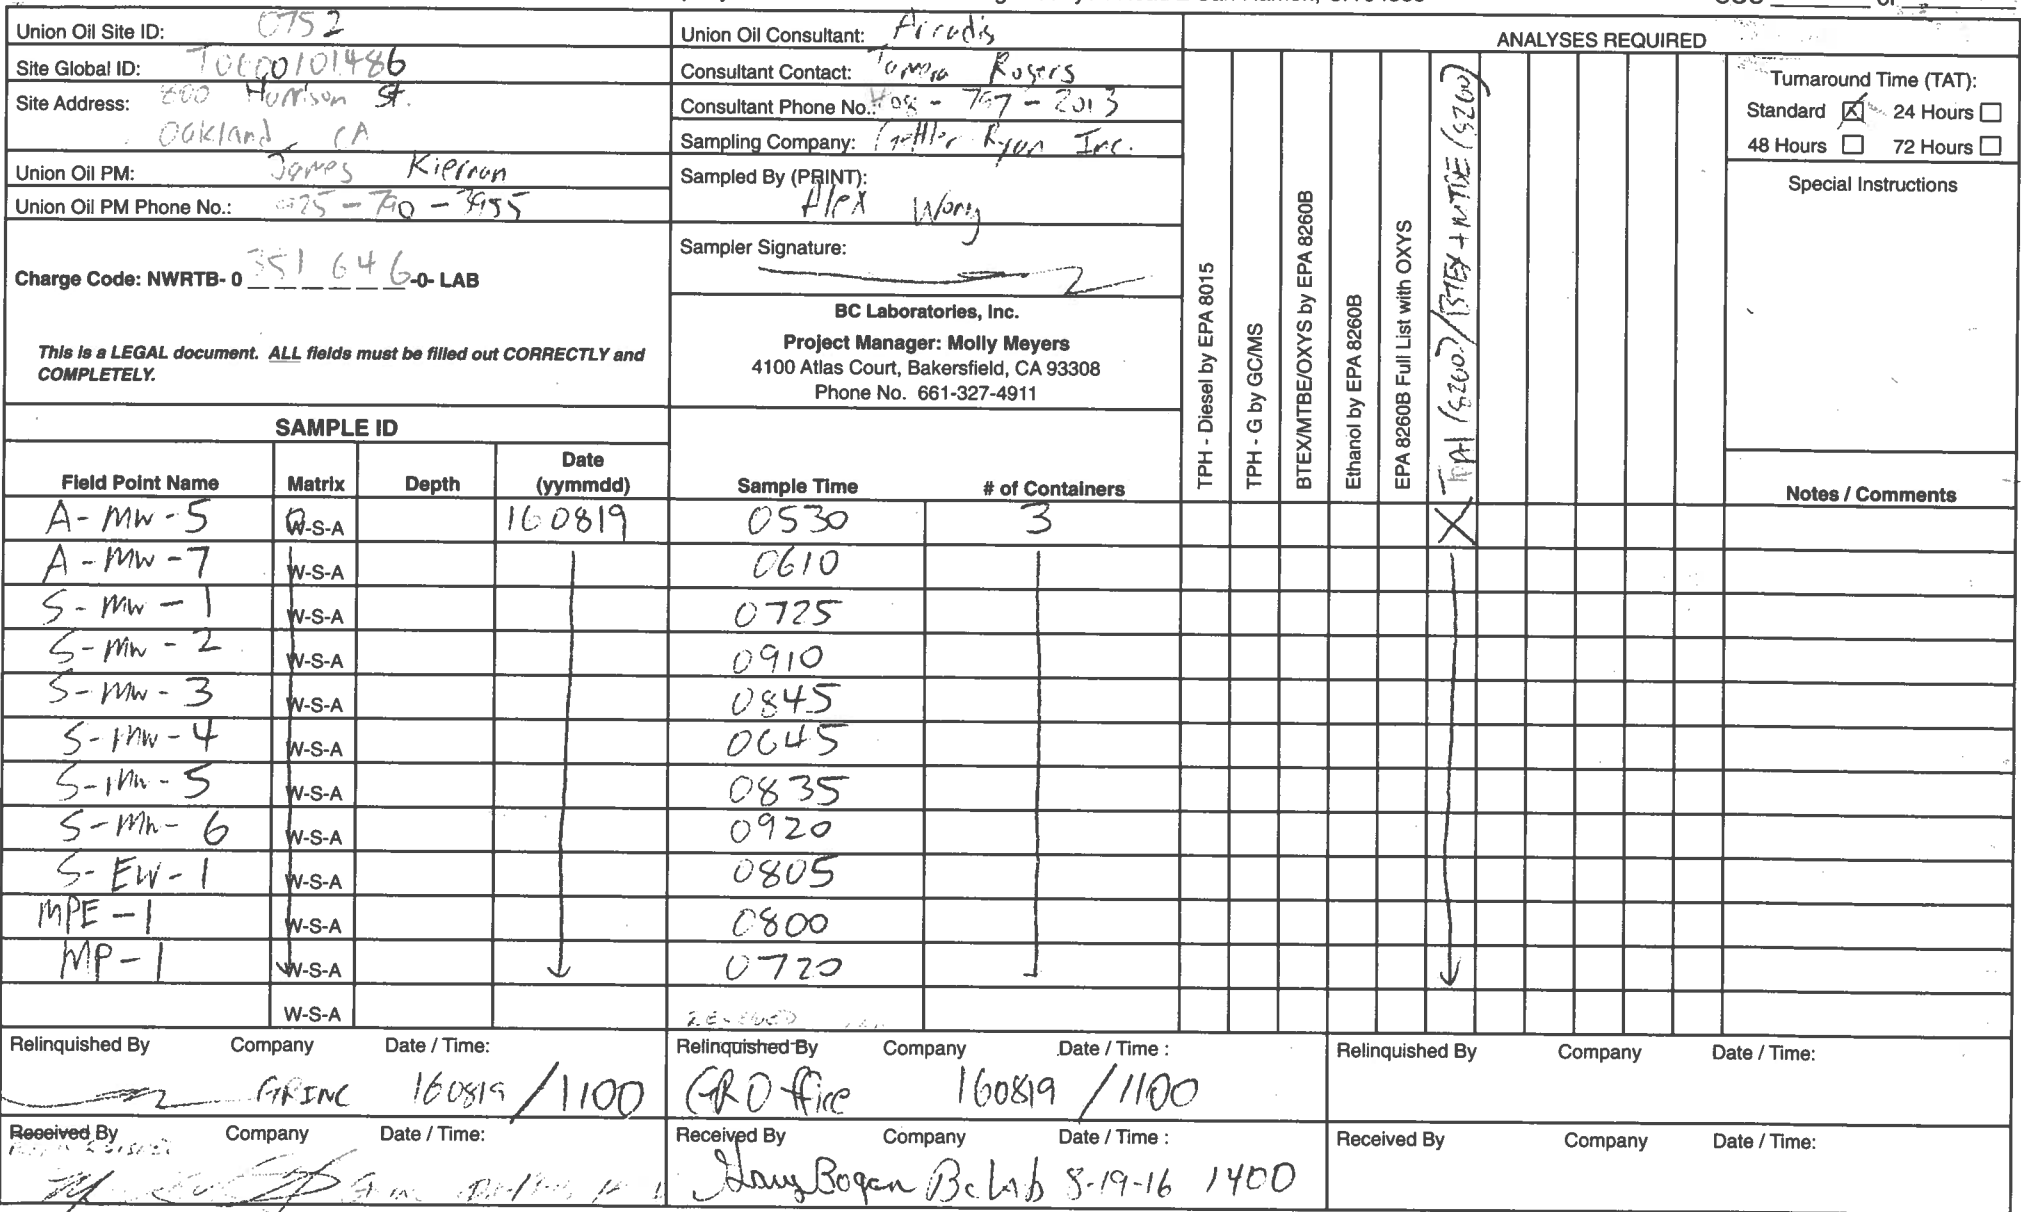 Union Oil Site ID: 0752
Site Global ID: T0600101486
Site Address: 800 Harrison St.
Oakland, CA
Union Oil PM: James Kiernan
Union Oil PM Phone No.: 925-790-3955
Charge Code: NWRTB- 0 351 646 -0- LAB
This is a LEGAL document. ALL fields must be filled out CORRECTLY and
COMPLETELY.
Union Oil Consultant: Arcadis
Consultant Contact: Tamara Rogers
Consultant Phone No.: 408-797-2013
Sampling Company: Gettler Ryan Inc.
Sampled By (PRINT):
Alex Wong
Sampler Signature:
BC Laboratories, Inc.
Project Manager: Molly Meyers
4100 Atlas Court, Bakersfield, CA 93308
Phone No. 661-327-4911
ANALYSES REQUIRED
TPH - Diesel by EPA 8015
TPH - G by GC/MS
BTEX/MTBE/OXYS by EPA 8260B
Ethanol by EPA 8260B
EPA 8260B Full List with OXYS
TPH (8260) / BTEX + MTBE (8260)
Turnaround Time (TAT):
Standard X 24 Hours
48 Hours 72 Hours
Special Instructions
Notes / Comments
SAMPLE ID
Field Point Name Matrix Depth Date (yymmdd) Sample Time # of Containers
A-MW-5 W-S-A 160819 0530 3 X
A-MW-7 W-S-A 0610
S-MW-1 W-S-A 0725
S-MW-2 W-S-A 0910
S-MW-3 W-S-A 0845
S-MW-4 W-S-A 0645
S-MW-5 W-S-A 0835
S-MW-6 W-S-A 0920
S-EW-1 W-S-A 0805
MPE-1 W-S-A 0800
MP-1 W-S-A 0720
W-S-A
Relinquished By Company Date / Time: Relinquished By Company Date / Time : Relinquished By Company Date / Time:
GRINC 160819 / 1100 GR Office 160819 / 1100
Received By Company Date / Time: Received By Company Date / Time : Received By Company Date / Time:
Gary Bogan BC Lab 8-19-16 1400